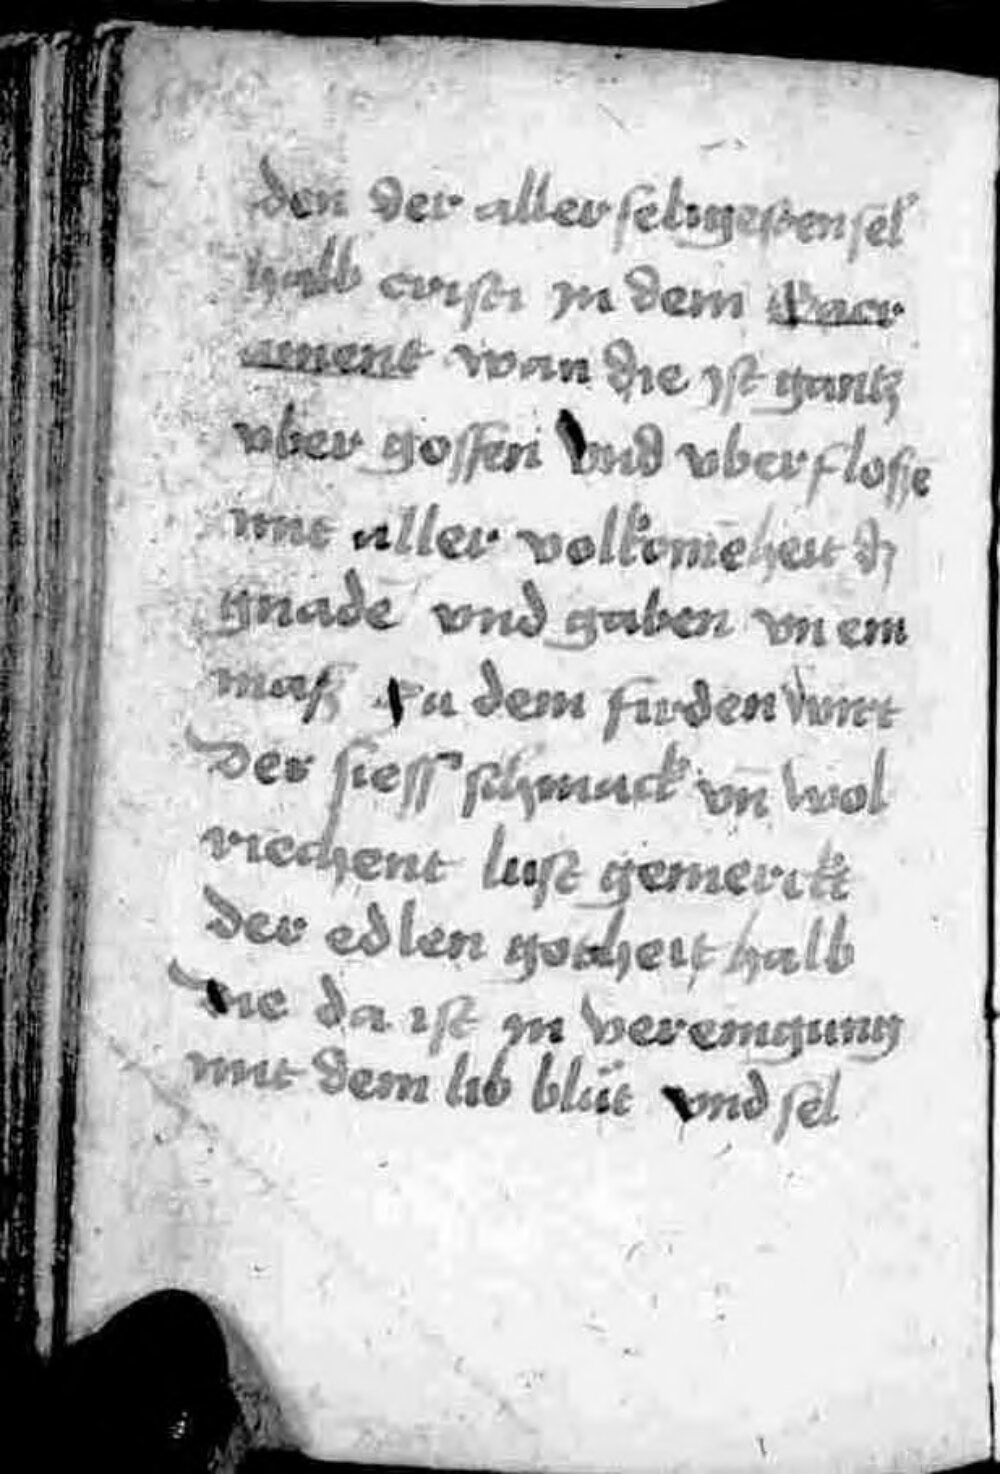 den der aller seligesten sel
halb cristi jn dem Sacr
ament wan die ist gantz
vber gossen vnd vberflosse
mit aller volkomēheit d
gnadē vnd gaben vn em
maß Zu dem firden wirt
Der siess schmack vn̄ wol
riechent lust gemerckt
der edlen gotheit halb
die da ist jn vereinigung
mit dem lib blůt vnd sel